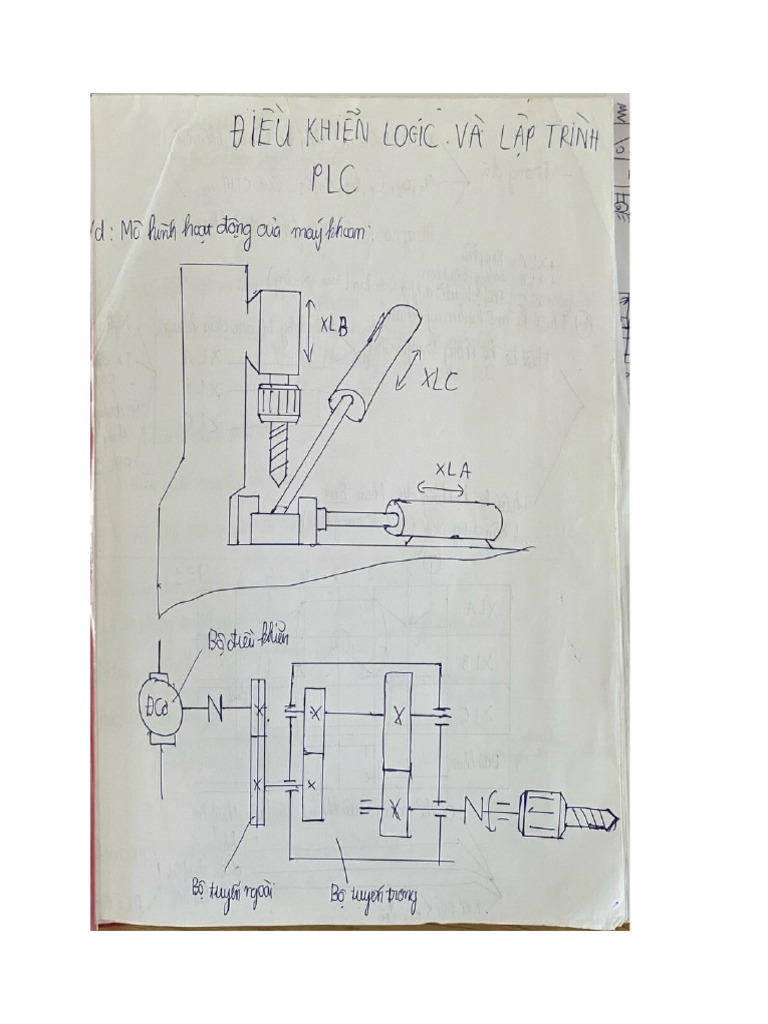 ĐIỀU KHIỂN LOGIC VÀ LẬP TRÌNH
PLC
Vd: Mô hình hoạt động của máy khoan:
XLB
XLC
XLA
Bộ điều khiển
ĐCơ
Bộ truyền ngoài
Bộ truyền trong